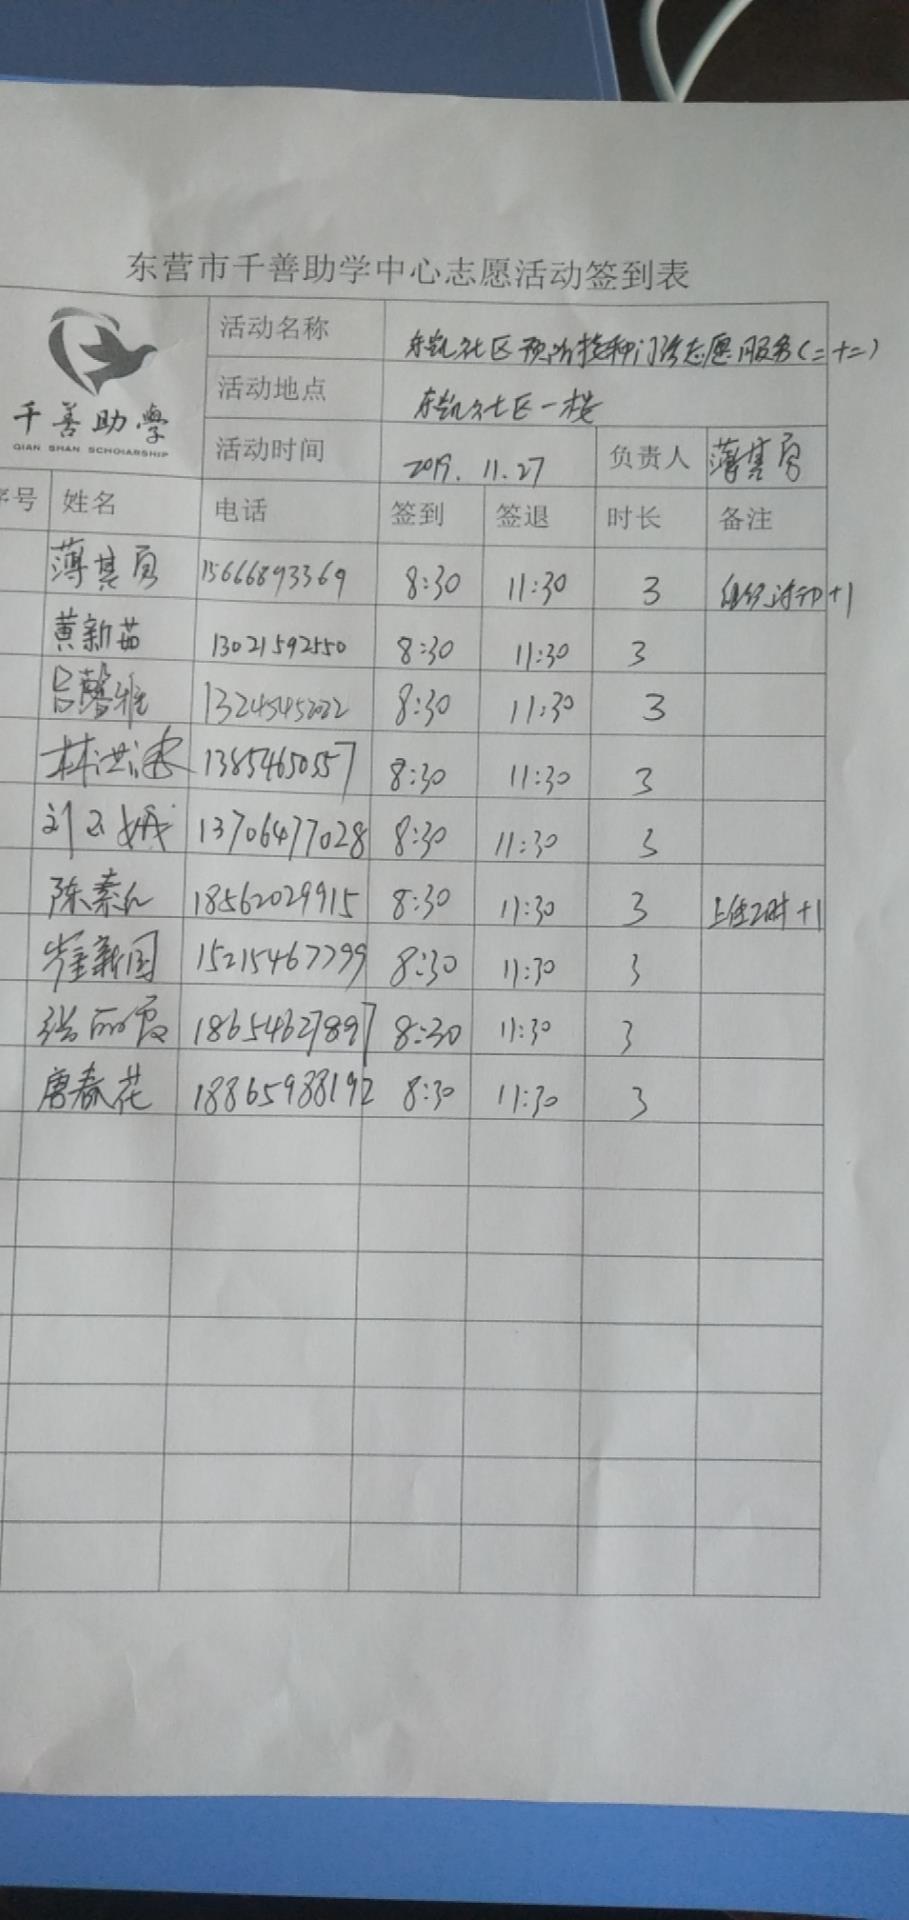 东营市千善助学中心志愿活动签到表
千善助學
QIAN SHAN SCHOIARSHIP
活动名称 东凯社区预防接种门诊志愿服务(二十二)
活动地点 东凯社区一楼
活动时间 2019.11.27 负责人 薄其
序号 姓名 电话 签到 签退 时长 备注
薄其 15666893369 8:30 11:30 3 组织活动+1
黄新茹 13021592550 8:30 11:30 3
吕馨雅 13245452022 8:30 11:30 3
林洪 13854650557 8:30 11:30 3
刘玉娥 13706477028 8:30 11:30 3
陈素 18562029915 8:30 11:30 3 +1
新国 15215467799 8:30 11:30 3
张丽霞 18654627897 8:30 11:30 3
唐春花 18865988192 8:30 11:30 3